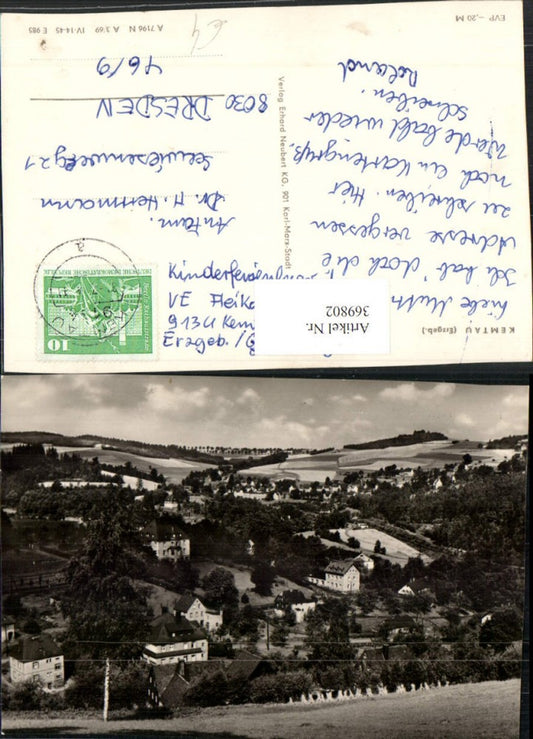 KEMTAU (Erzgeb.)
Liebe Mutti
Ich hab' doch die
Adresse vergessen
zu schreiben. Hier
noch ein Kartengruß.
Werde bald wieder
schreiben.
Roland
Verlag Erhard Neubert KG, 901 Karl-Marx-Stadt
EVP -,20 M
A 7196 N A 3/69 IV-14-45 E 985
DEUTSCHE DEMOKRATISCHE REPUBLIK
10
VE
913 Kem
Erzgeb./
Antam.
Dr. H. Herrmann
Seewiesenweg 21
8030 DRESDEN
46/9
Artikel Nr.
369802